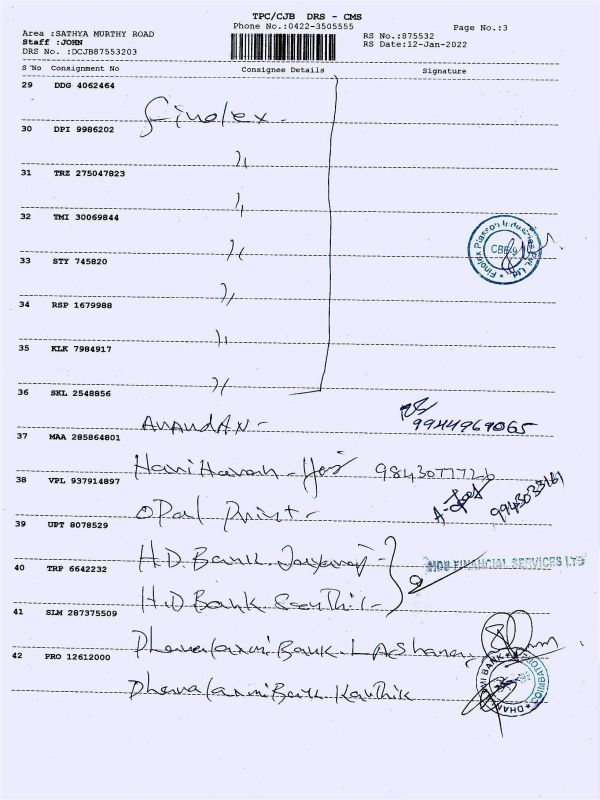 TPC/CJB DRS - CMS
Phone No.:0422-3505555
Page No.:3
Area :SATHYA MURTHY ROAD
Staff :JOHN
DRS No. :DCJB87553203
RS No.:875532
RS Date:12-Jan-2022
S No Consignment No Consignee Details Signature
29 DDG 4062464
Finolex -
30 DPI 9986202
31 TRZ 275047823
32 TMI 30069844
33 STY 745820
Finolex Plasson Industries Pvt. Ltd
CBE-9
34 RSP 1679988
35 KLK 7984917
36 SKL 2548856
Anandan -
9944969065
37 MAA 285864801
Hariharan - 9843077726
38 VPL 937914897
Opal Print -
9943033161
39 UPT 8078529
H.D. Bank
HDB FINANCIAL SERVICES LTD
40 TRP 6642232
H.D Bank Senthil -
41 SLM 287375509
Dhanalaxmi Bank
42 PRO 12612000
Dhanalaxmi Bank Karthik